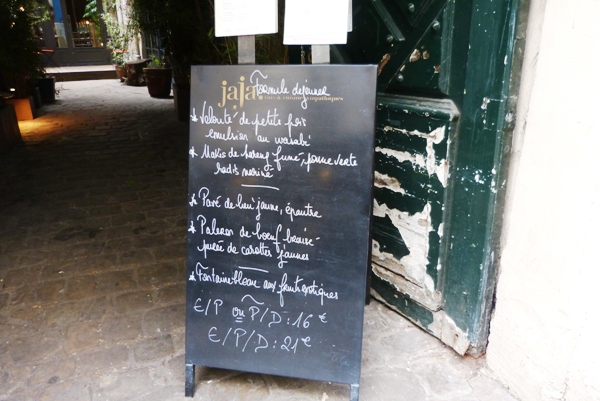 jaja
Formule dejeuner
vins & cuisine sympathiques
* Velouté de petits pois
emulsion au wasabi
* Makis de hareng fumé, pomme verte
radis mariné
* Pavé de lieu jaune, épeautre
* Paleron de boeuf braisé
purée de carottes jaunes
* Fontainebleau aux fruits exotiques
E/P ou P/D : 16 €
E/P/D : 21 €